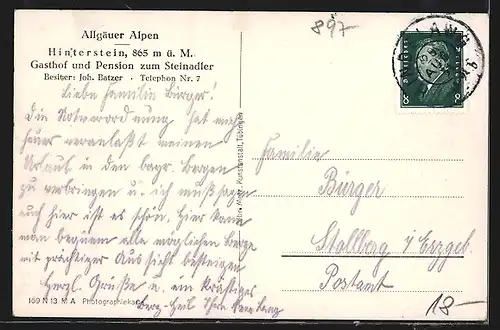 Allgäuer Alpen
Hinterstein, 865 m ü. M.
Gasthof und Pension zum Steinadler
Besitzer: Joh. Batzer · Telephon Nr. 7
897
Liebe Familie Bürger!
Die Notverordnung hat mich
heuer veranlaßt meinen
Urlaub in den bayr. Bergen
zu verbringen u. ich muß sagen
auch hier ist es schön. Hier kann
man bequem alle möglichen Berge
mit prächtiger Aussicht besteigen
Herzl. Grüße u. ein kräftiges
Berg-Heil Ihre
169 N 13 M A Photographiekarte
Gebr. Metz, Kunstanstalt, Tübingen
8 8
Familie
Bürger
Stollberg i/Erzgeb.
Postamt
18-